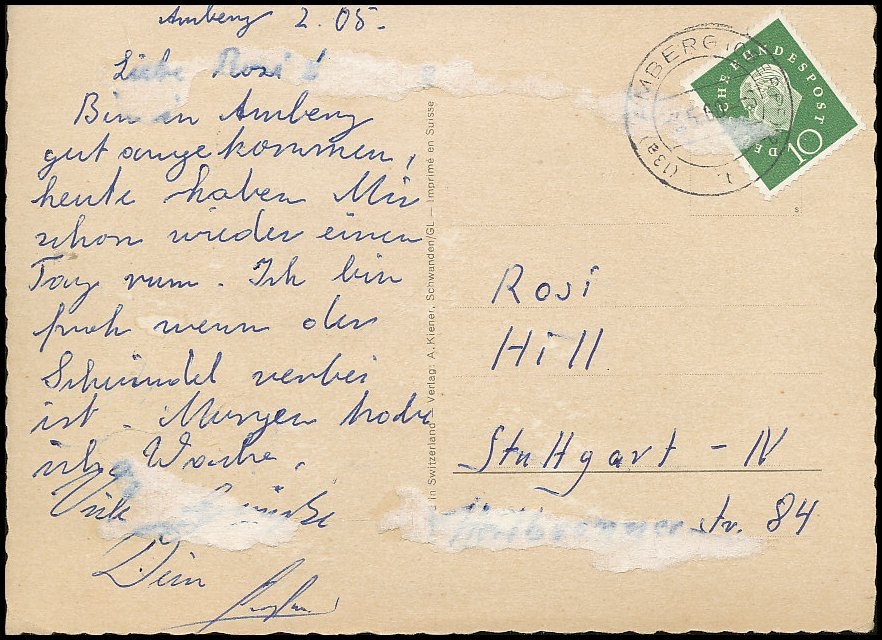 Amberg 2.05.
Liebe Rosi!
Bin in Amberg
gut angekommen,
heute haben Wir
schon wieder einen
Tag rum. Ich bin
froh wenn der
Schwindel verbei
ist. Morgen habe
ich Wache.
Viele Grüße
Dein
in Switzerland — Verlag: A. Kiener, Schwanden/GL — Imprimé en Suisse
AMBERG
(13a)
DEUTSCHE BUNDESPOST
10
s
Rosi
Hill
Stuttgart - N
Heilbronner str. 84